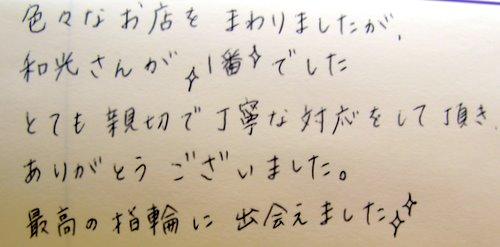 色々なお店を まわりましたが、
和光さんが ✧1番✧でした
とても 親切で丁寧な対応をして頂き、
ありがとう ございました。
最高の指輪に 出会えました✧✧